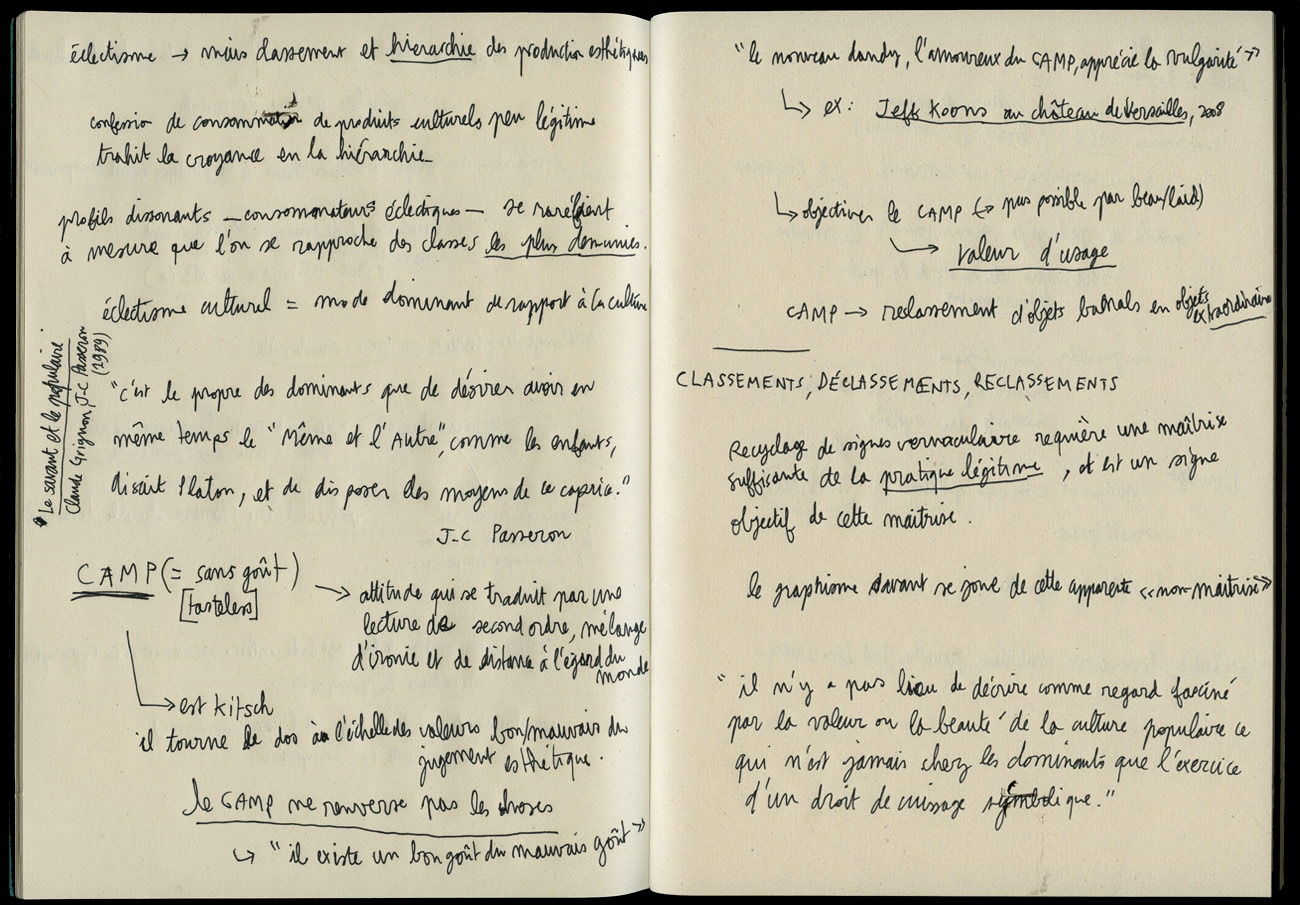 éclectisme → mais classement et hiérarchie des production esthétiques
confession de consommation de produits culturels peu légitime
trahit la croyance en la hiérarchie_
profils dissonants — consommateurs éclectiques — se raréfient
à mesure que l'on se rapproche des classes les plus démunies.
éclectisme culturel = mode dominant de rapport à la culture
*Le savant et le populaire
Claude Grignon, J-C Passeron
(1989)
"c'est le propre des dominants que de désirer avoir en
même temps le "Même et l'Autre", comme les enfants,
disait Platon, et de disposer des moyens de ce caprice."
J-C Passeron
CAMP (= sans goût)
[tasteless]
→ attitude qui se traduit par une
lecture de second ordre, mélange
d'ironie et de distance à l'égard du
monde
→ est kitsch
il tourne le dos à l'échelle des valeurs bon/mauvais du
jugement esthétique.
le CAMP ne renverse pas les choses
↳ "il existe un bon goût du mauvais goût"
"le nouveau dandy, l'amoureux du CAMP, apprécie la vulgarité"
↳ ex: Jeff Koons au château de Versailles, 2008
↳ objectiver le CAMP (→ pas possible par beau/laid)
→ valeur d'usage
CAMP → reclassement d'objets banals en objets
extraordinaires
CLASSEMENTS, DÉCLASSEMENTS, RECLASSEMENTS
Recyclage de signes vernaculaire requière une maîtrise
suffisante de la pratique légitime, et est un signe
objectif de cette maîtrise.
le graphisme savant se joue de cette apparente «non-maîtrise»
"il n'y a pas lieu de décrire comme regard fasciné
par la valeur ou la beauté de la culture populaire ce
qui n'est jamais chez les dominants que l'exercice
d'un droit de cuissage symbolique."